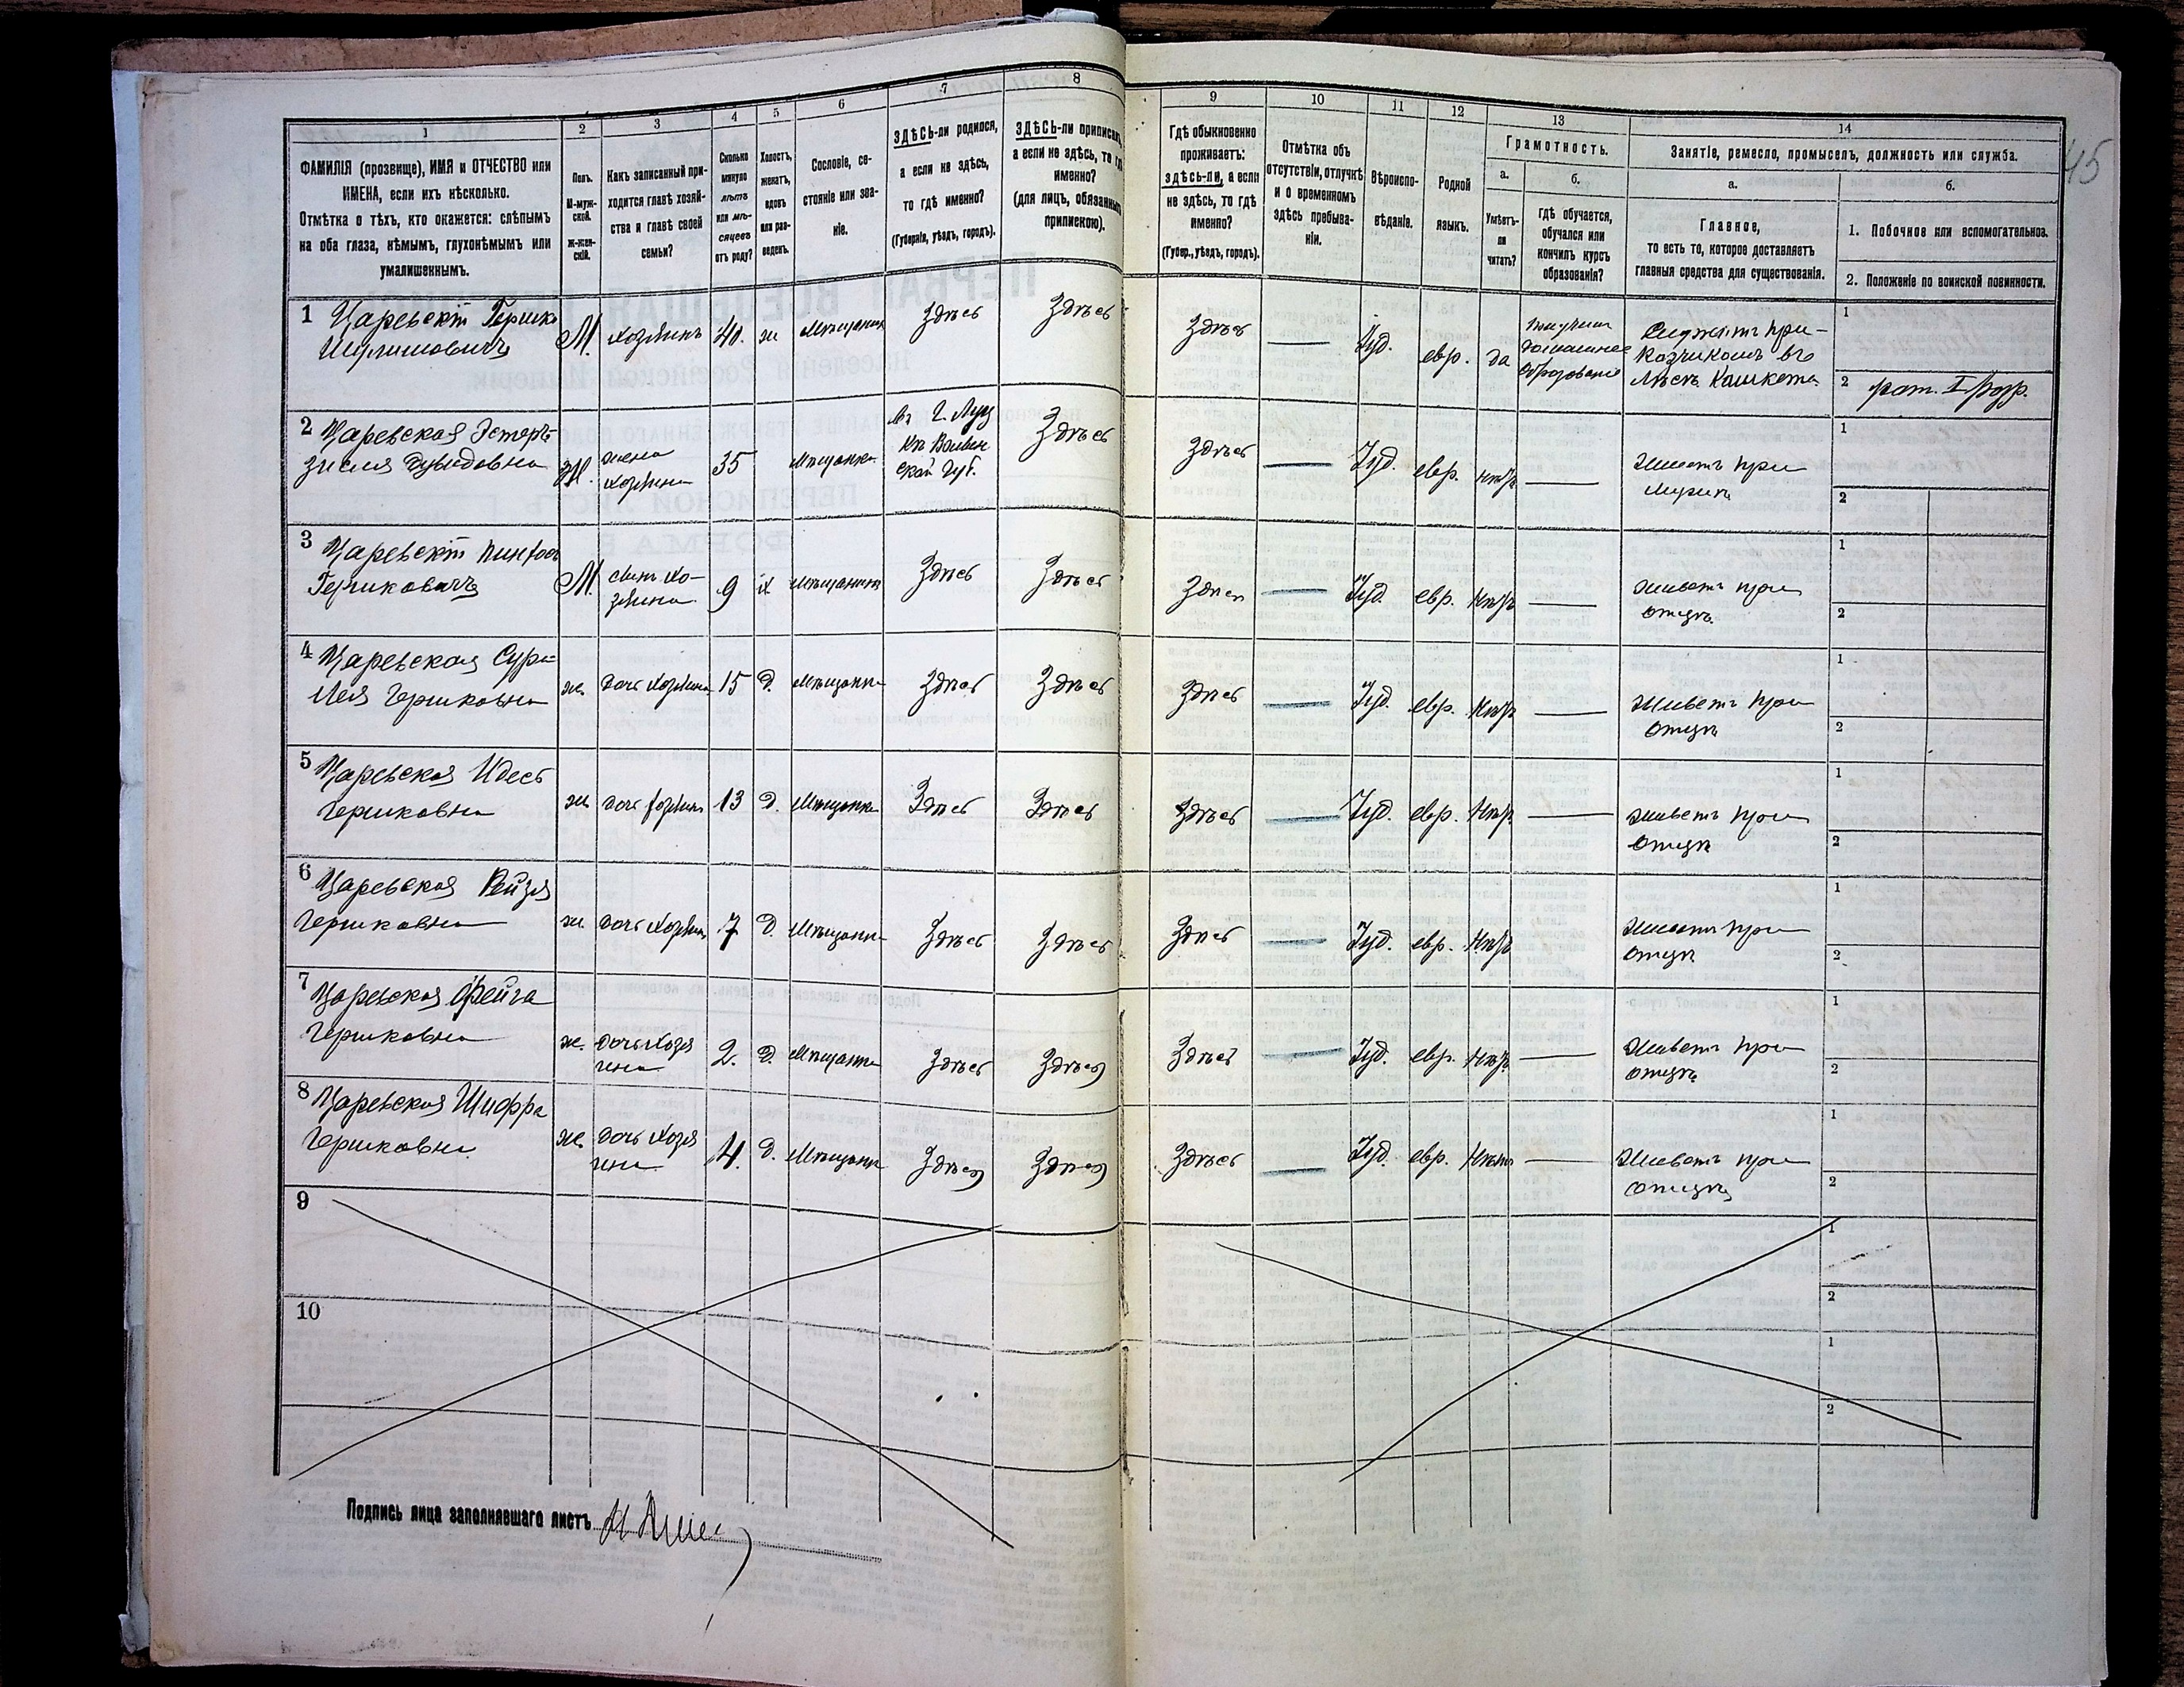 1
2
3
4
5
6
7
8
ФАМИЛІЯ (прозвище), ИМЯ и ОТЧЕСТВО или
ИМЕНА, если ихъ нѣсколько.
Отмѣтка о тѣхъ, кто окажется: слѣпымъ
на оба глаза, нѣмымъ, глухонѣмымъ или
умалишеннымъ.
Полъ.
М-муж-
ской.
Ж-жен-
скій.
Какъ записанный при-
ходится главѣ хозяй-
ства и главѣ своей
семьи?
Сколько
минуло
лѣтъ
или мѣ-
сяцевъ
отъ роду?
Холостъ,
женатъ,
вдовъ
или раз-
веденъ.
Сословіе, со-
стояніе или зва-
ніе.
ЗДѢСЬ-ли родился,
а если не здѣсь,
то гдѣ именно?
(Губернія, уѣздъ, городъ).
ЗДѢСЬ-ли приписанъ,
а если не здѣсь, то гдѣ
именно?
(для лицъ, обязанныхъ
припискою).
9
10
11
12
13
14
Гдѣ обыкновенно
проживаетъ:
здѣсь-ли, а если
не здѣсь, то гдѣ
именно?
(Губер., уѣздъ, городъ).
Отмѣтка объ
отсутствіи, отлучкѣ
и о временномъ
здѣсь пребыва-
ніи.
Вѣроиспо-
вѣданіе.
Родной
языкъ.
Грамотность.
а.
б.
Умѣетъ-
ли
читать?
гдѣ обучается,
обучался или
кончилъ курсъ
образованія?
Занятіе, ремесло, промыселъ, должность или служба.
а.
б.
Главное,
то есть то, которое доставляетъ
главныя средства для существованія.
1. Побочное или вспомогательное.
2. Положеніе по воинской повинности.
45
1 Царевскій Гершко
М. хозяинъ 40. ж мѣщанинъ Здѣсь Здѣсь
Здѣсь — Іуд. евр. да
домашнее
образованіе
при-
казчикомъ въ
1
2 рат. I разр.
2 Царевская Эстеръ
Давидовна
Ж. жена
хозяина
35 мѣщанка
въ г. Луц
кѣ Волын
ской губ.
Здѣсь
Здѣсь — Іуд. евр. нѣтъ —
Живетъ при
мужѣ
1
2
3 Царевскій Пинхосъ
Гершковичъ
М. сынъ хо-
зяина
9 х мѣщанинъ Здѣсь Здѣсь
Здѣсь — Іуд. евр. нѣтъ —
живетъ при
отцѣ
1
2
4 Царевская Сура
Лея Гершковна
ж. дочь хозяина 15 д. мѣщанка Здѣсь Здѣсь
Здѣсь — Іуд. евр. нѣтъ —
Живетъ при
отцѣ
1
2
5 Царевская Идесь
Гершковна
ж дочь хозяина 13 д. мѣщанка Здѣсь Здѣсь
Здѣсь — Іуд. евр. нѣтъ —
живетъ при
отцѣ
1
2
6 Царевская Рейзя
Гершковна
ж. дочь хозяина 7 д. мѣщанка Здѣсь Здѣсь
Здѣсь — Іуд. евр. нѣтъ
Живетъ при
отцѣ
1
2
7 Царевская Фейга
Гершковна
ж. дочь хозя
ина
2. д. мѣщанка Здѣсь Здѣсь
Здѣсь — Іуд. евр. нѣтъ —
Живетъ при
отцѣ
1
2
8 Царевская Шифра
Гершковна
ж. дочь хозя
ина
4. д. мѣщанка Здѣсь Здѣсь
Здѣсь — Іуд. евр. нѣтъ —
Живетъ при
отцѣ
1
2
9
1
2
10
1
2
Подпись лица заполнявшаго листъ